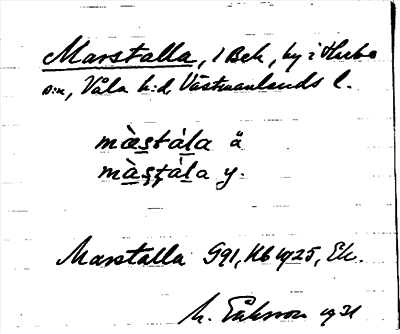 Marstalla, 1 Bek, by i Hubbo
s:n, Våla h:d, Västmanlands l.
màstála ä
màstála y.
Marstalla G91, Kb 1925, Ek.
M. Eriksson 1931